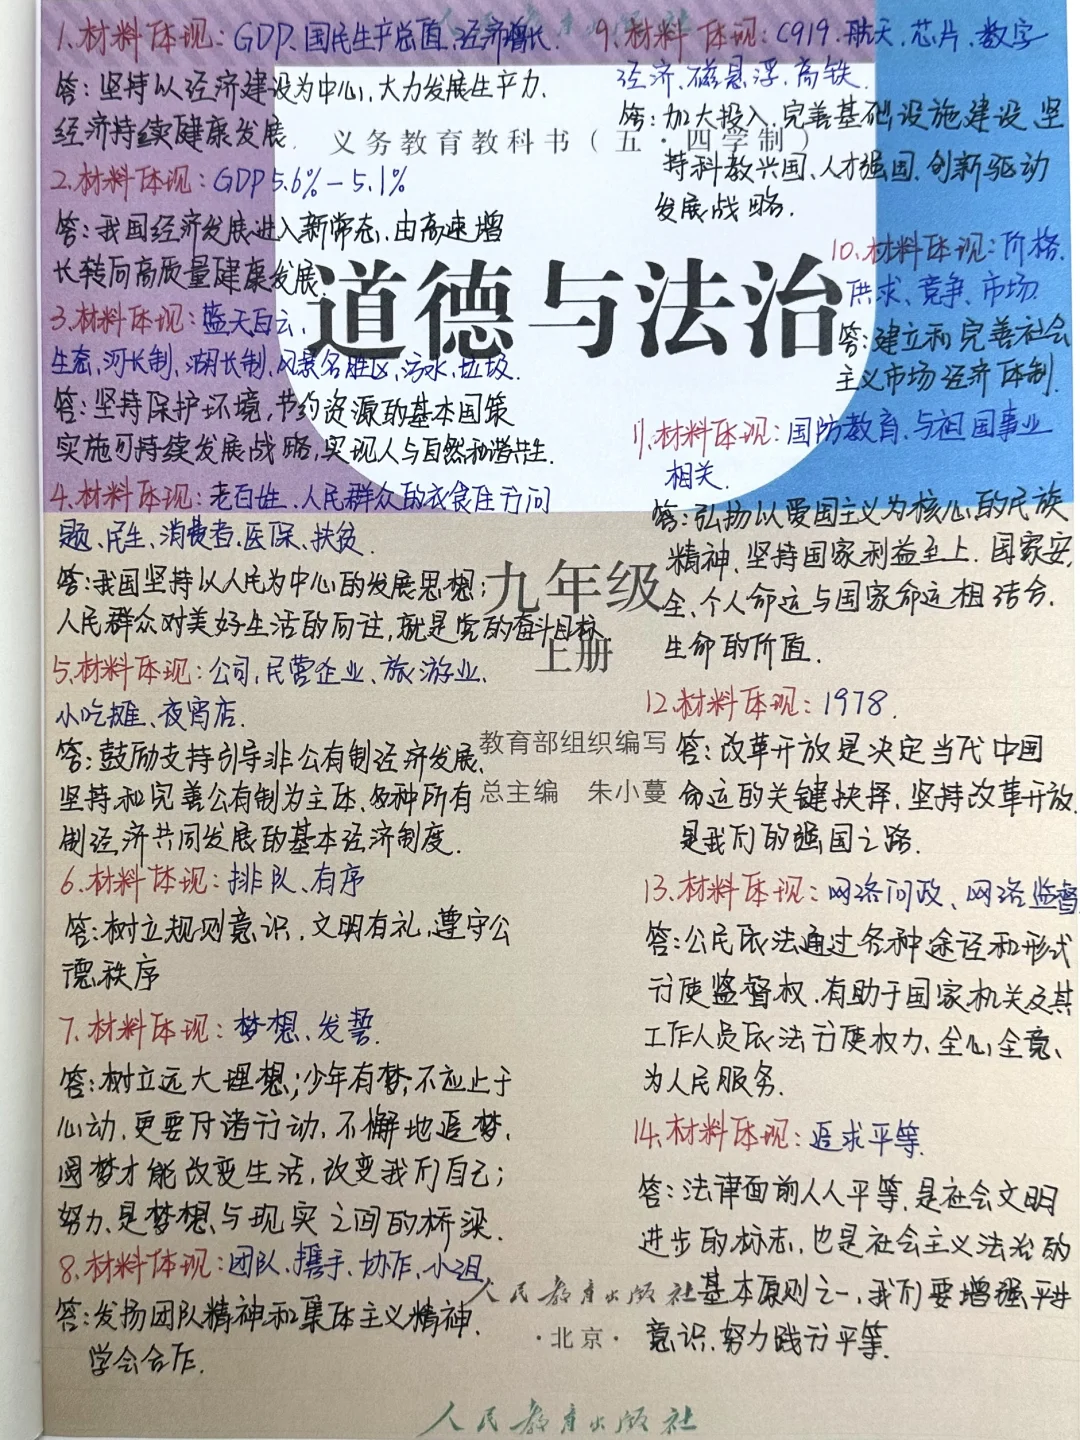 人民教育出版社
1.材料体现：GDP、国民生产总值、经济增长.
答：坚持以经济建设为中心，大力发展生产力.
经济持续健康发展.
2.材料体现：GDP5.6%－5.1%
答：我国经济发展进入新常态，由高速增
长转向高质量健康发展.
3.材料体现：蓝天白云，
生态、河长制、湖长制、风景名胜区、污水、垃圾.
答：坚持保护环境，节约资源的基本国策
实施可持续发展战略，实现人与自然和谐共生.
4.材料体现：老百姓、人民群众的衣食住行问
题、民生、消费者、医保、扶贫.
答：我国坚持以人民为中心的发展思想；
人民群众对美好生活的向往，就是党的奋斗目标.
5.材料体现：公司，民营企业、旅游业、
小吃摊、夜宵店.
答：鼓励支持引导非公有制经济发展.
坚持和完善公有制为主体、多种所有
制经济共同发展的基本经济制度.
6.材料体现：排队、有序
答：树立规则意识，文明有礼，遵守公
德秩序
7.材料体现：梦想、发誓.
答：树立远大理想；少年有梦，不应止于
心动，更要付诸行动，不懈地追梦，
圆梦才能改变生活，改变我们自己；
努力，是梦想与现实之间的桥梁.
8.材料体现：团队、携手、协作、小组
答：发扬团队精神和集体主义精神，
学会合作.
9.材料体现：C919.航天、芯片、数字
经济、磁悬浮、高铁.
答：加大投入，完善基础设施建设，坚
持科教兴国、人才强国，创新驱动
发展战略.
10.材料体现：价格.
供求、竞争、市场.
答：建立和完善社会
主义市场经济体制.
11.材料体现：国防教育、与祖国事业
相关.
答：弘扬以爱国主义为核心的民族
精神、坚持国家利益至上，国家安
全、个人命运与国家命运相结合.
生命的价值.
12.材料体现：1978.
答：改革开放是决定当代中国
命运的关键抉择，坚持改革开放
是我们的强国之路.
13.材料体现：网络问政、网络监督
答：公民依法通过各种途径和形式
行使监督权，有助于国家机关及其
工作人员依法行使权力、全心全意、
为人民服务.
14.材料体现：追求平等.
答：法律面前人人平等，是社会文明
进步的标志，也是社会主义法治的
基本原则之一，我们要增强平等
意识，努力践行平等.
义务教育教科书（五·四学制）
道德与法治
九年级
上册
教育部组织编写
总主编　朱小蔓
人民教育出版社
·北京·
人民教育出版社